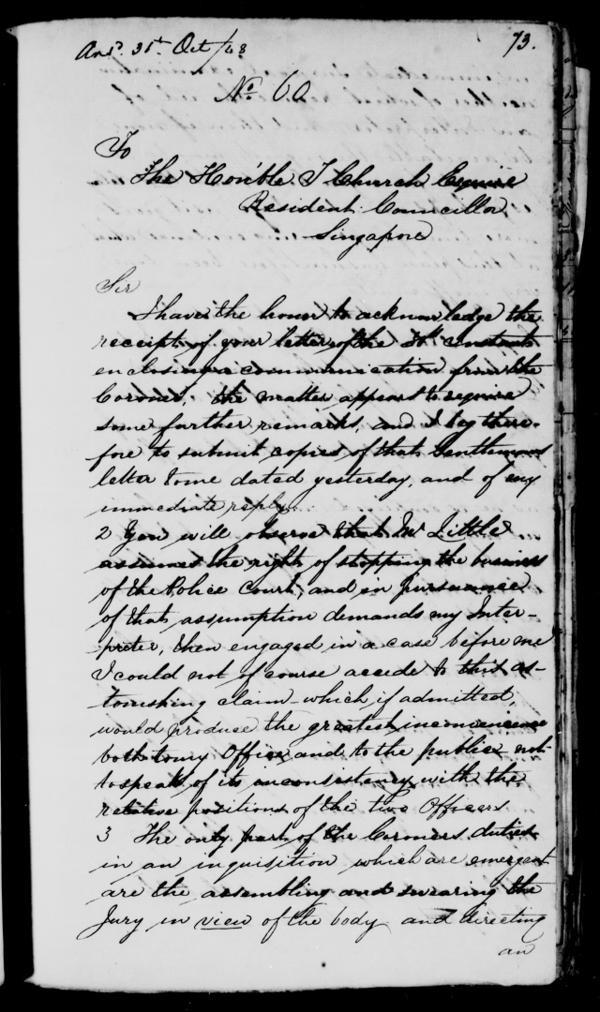 Ansd. 31st Oct/48
73.
No. 60
To
The Honble. T Church Esquire
Resident Councillor
Singapore
Sir
I have the honor to acknowledge the
receipt of your letter of the instant
enclosing a communication from the
Coroner, the matter appears to require
some further remarks, and I beg there-
fore to submit copies of that Gentlemans
letter to me dated yesterday, and of my
immediate reply.
2 You will observe that Mr Little
assumes the right of stopping the business
of the Police Court, and in pursuance
of that assumption demands my Inter-
preter, then engaged in a case before me
I could not of course accede to this as-
tonishing claim which, if admitted,
would produce the greatest inconvenience
both to my Office and to the public not
to speak of its inconsistency with the
relative positions of the two Officers
3 The only part of the Coroners duties
in an inquisition which are emergent
are the assembling and swearing the
Jury in view of the body and directing
an